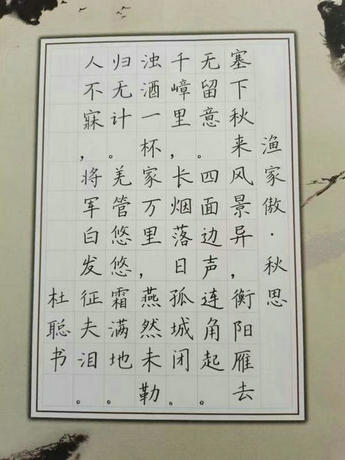 渔家傲·秋思
塞下秋来风景异，衡阳雁去
无留意。四面边声连角起。
千嶂里，长烟落日孤城闭。
浊酒一杯家万里，燕然未勒
归无计。羌管悠悠霜满地。
人不寐，将军白发征夫泪。
杜聪书